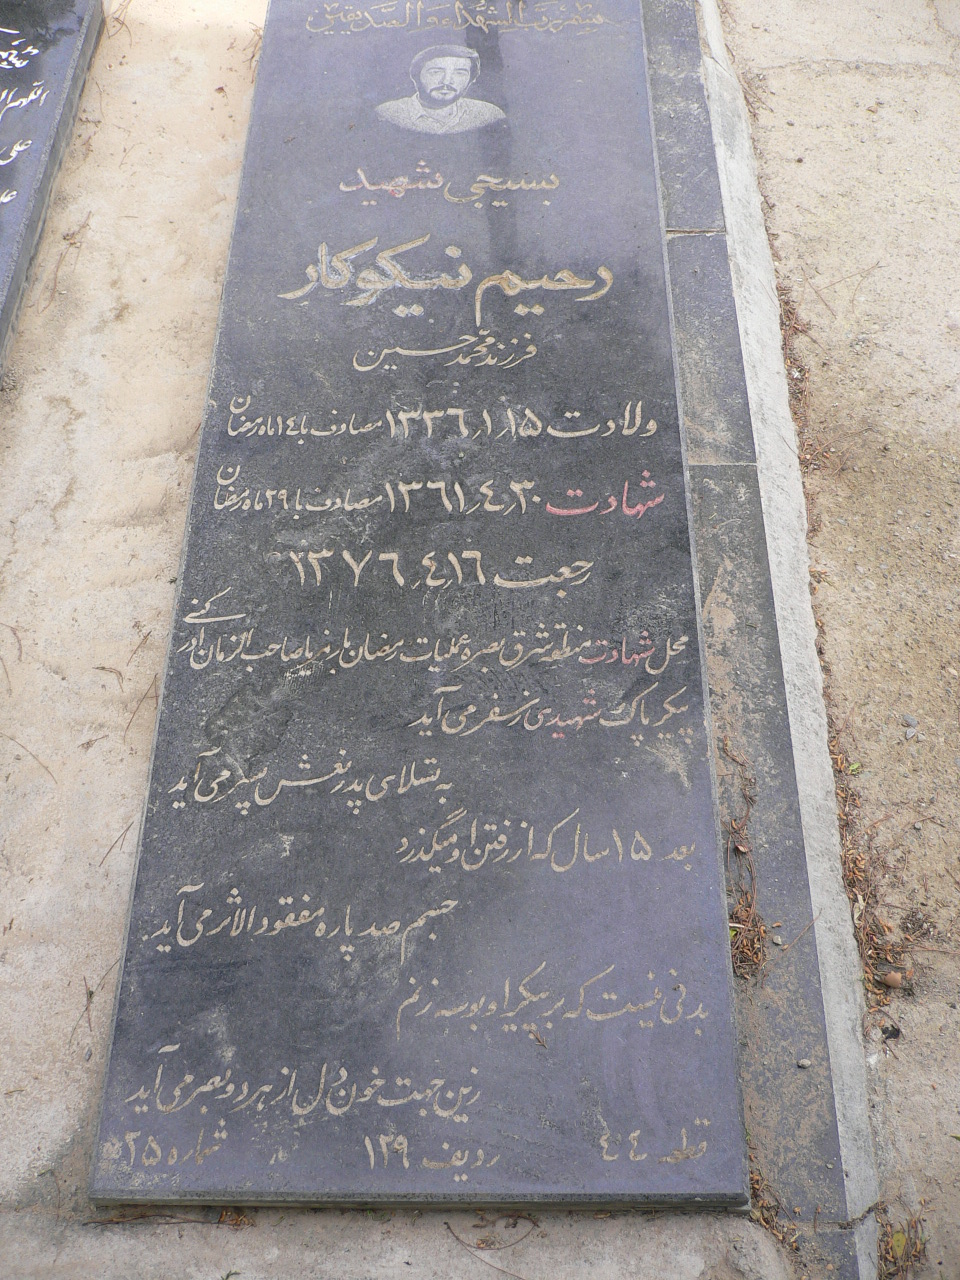 الشهداء و الصدیقین
بسیجی شهید
رحیم نیکوکار
فرزند محمد حسین
ولادت ۱۳۳۶/۱/۱۵ مصادف با ۱۴ ماه رمضان
شهادت ۱۳۶۱/۴/۳۰ مصادف با ۲۹ ماه رمضان
رجعت ۱۳۷۶/۴/۱۶
محل شهادت منطقه شرق بصره عملیات رمضان با رمز یا صاحب الزمان ادرکنی
پیکر پاک شهیدی ز سفر می آید
به تسلای پدر نعش پسر می آید
بعد ۱۵ سال که از رفتن او میگذرد
جسم صد پاره مفقود الاثر می آید
بدنی نیست که بر پیکر او بوسه زنم
زین جهت خون دل از هر دو بصر می آید
قطعه ۴۴ ردیف ۱۲۹ شماره ۵۲۵